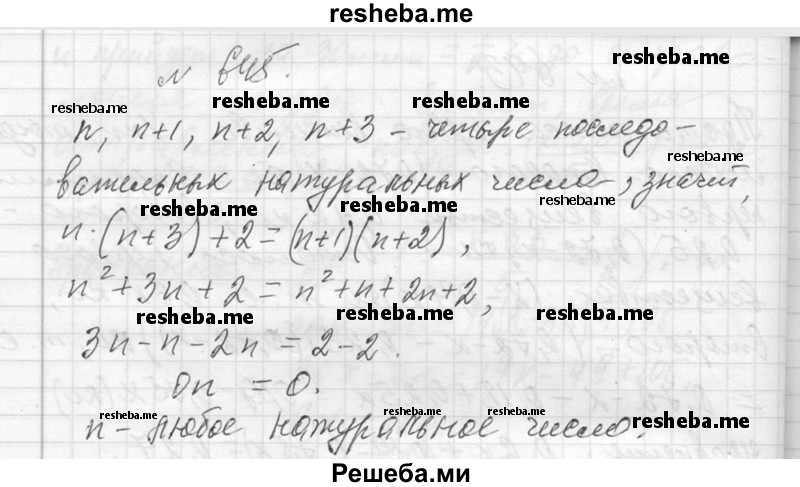 resheba.me
N 645.
resheba.me
resheba.me
resheba.me
resheba.me
n, n+1, n+2, n+3 - четыре последо-
resheba.me
вательных натуральных числа, значит,
resheba.me
resheba.me
resheba.me
n·(n+3)+2=(n+1)(n+2),
n²+3n+2=n²+n+2n+2,
resheba.me
resheba.me
resheba.me
3n-n-2n=2-2.
0n=0.
resheba.me
resheba.me
resheba.me
resheba.me
n - любое натуральное число.
Решеба.ми